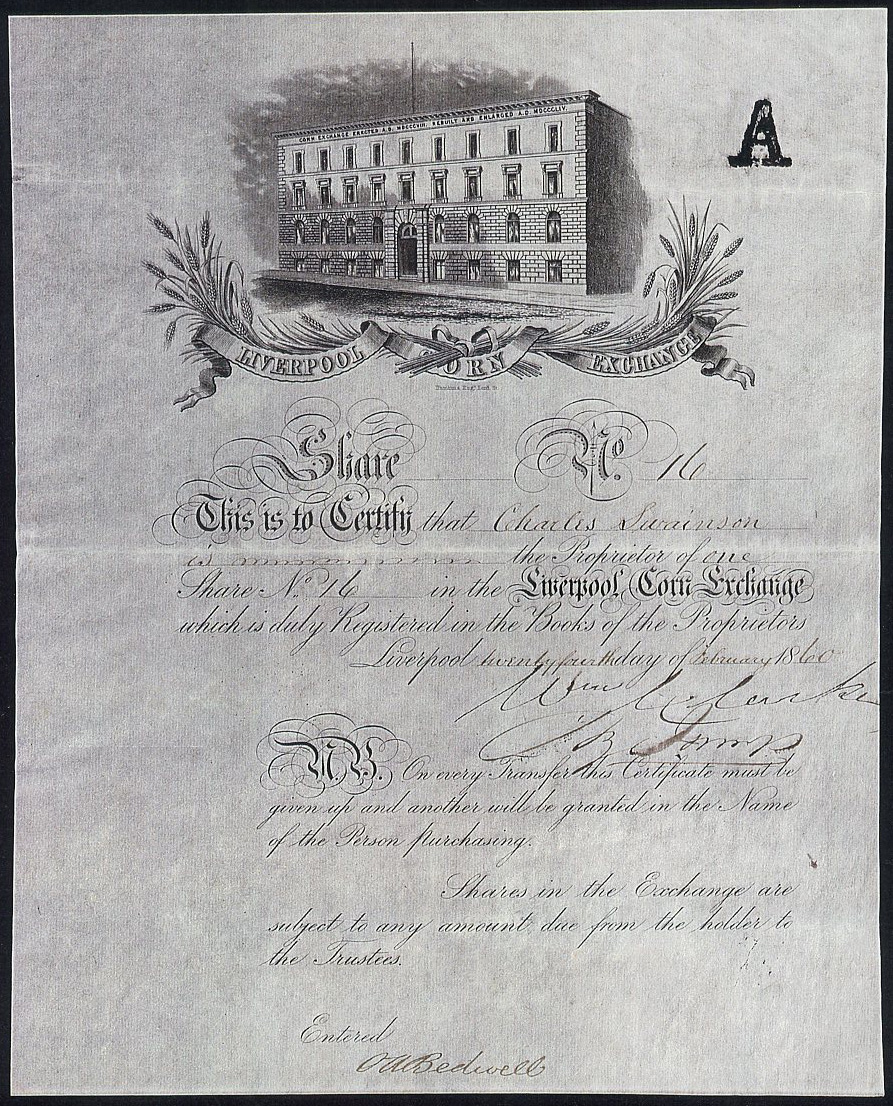 CORN EXCHANGE ERECTED A.D. MDCCCVIII. REBUILT AND ENLARGED A.D. MDCCCLIV.
A
LIVERPOOL CORN EXCHANGE
Share No. 16
This is to Certify that Charles Swainson
is the Proprietor of one
Share No. 16 in the Liverpool Corn Exchange
which is duly Registered in the Books of the Proprietors
Liverpool twenty fourth day of February 1860
Wm
N.B. On every Transfer this Certificate must be
given up and another will be granted in the Name
of the Person purchasing.
Shares in the Exchange are
subject to any amount due from the holder to
the Trustees.
Entered
Bedwell